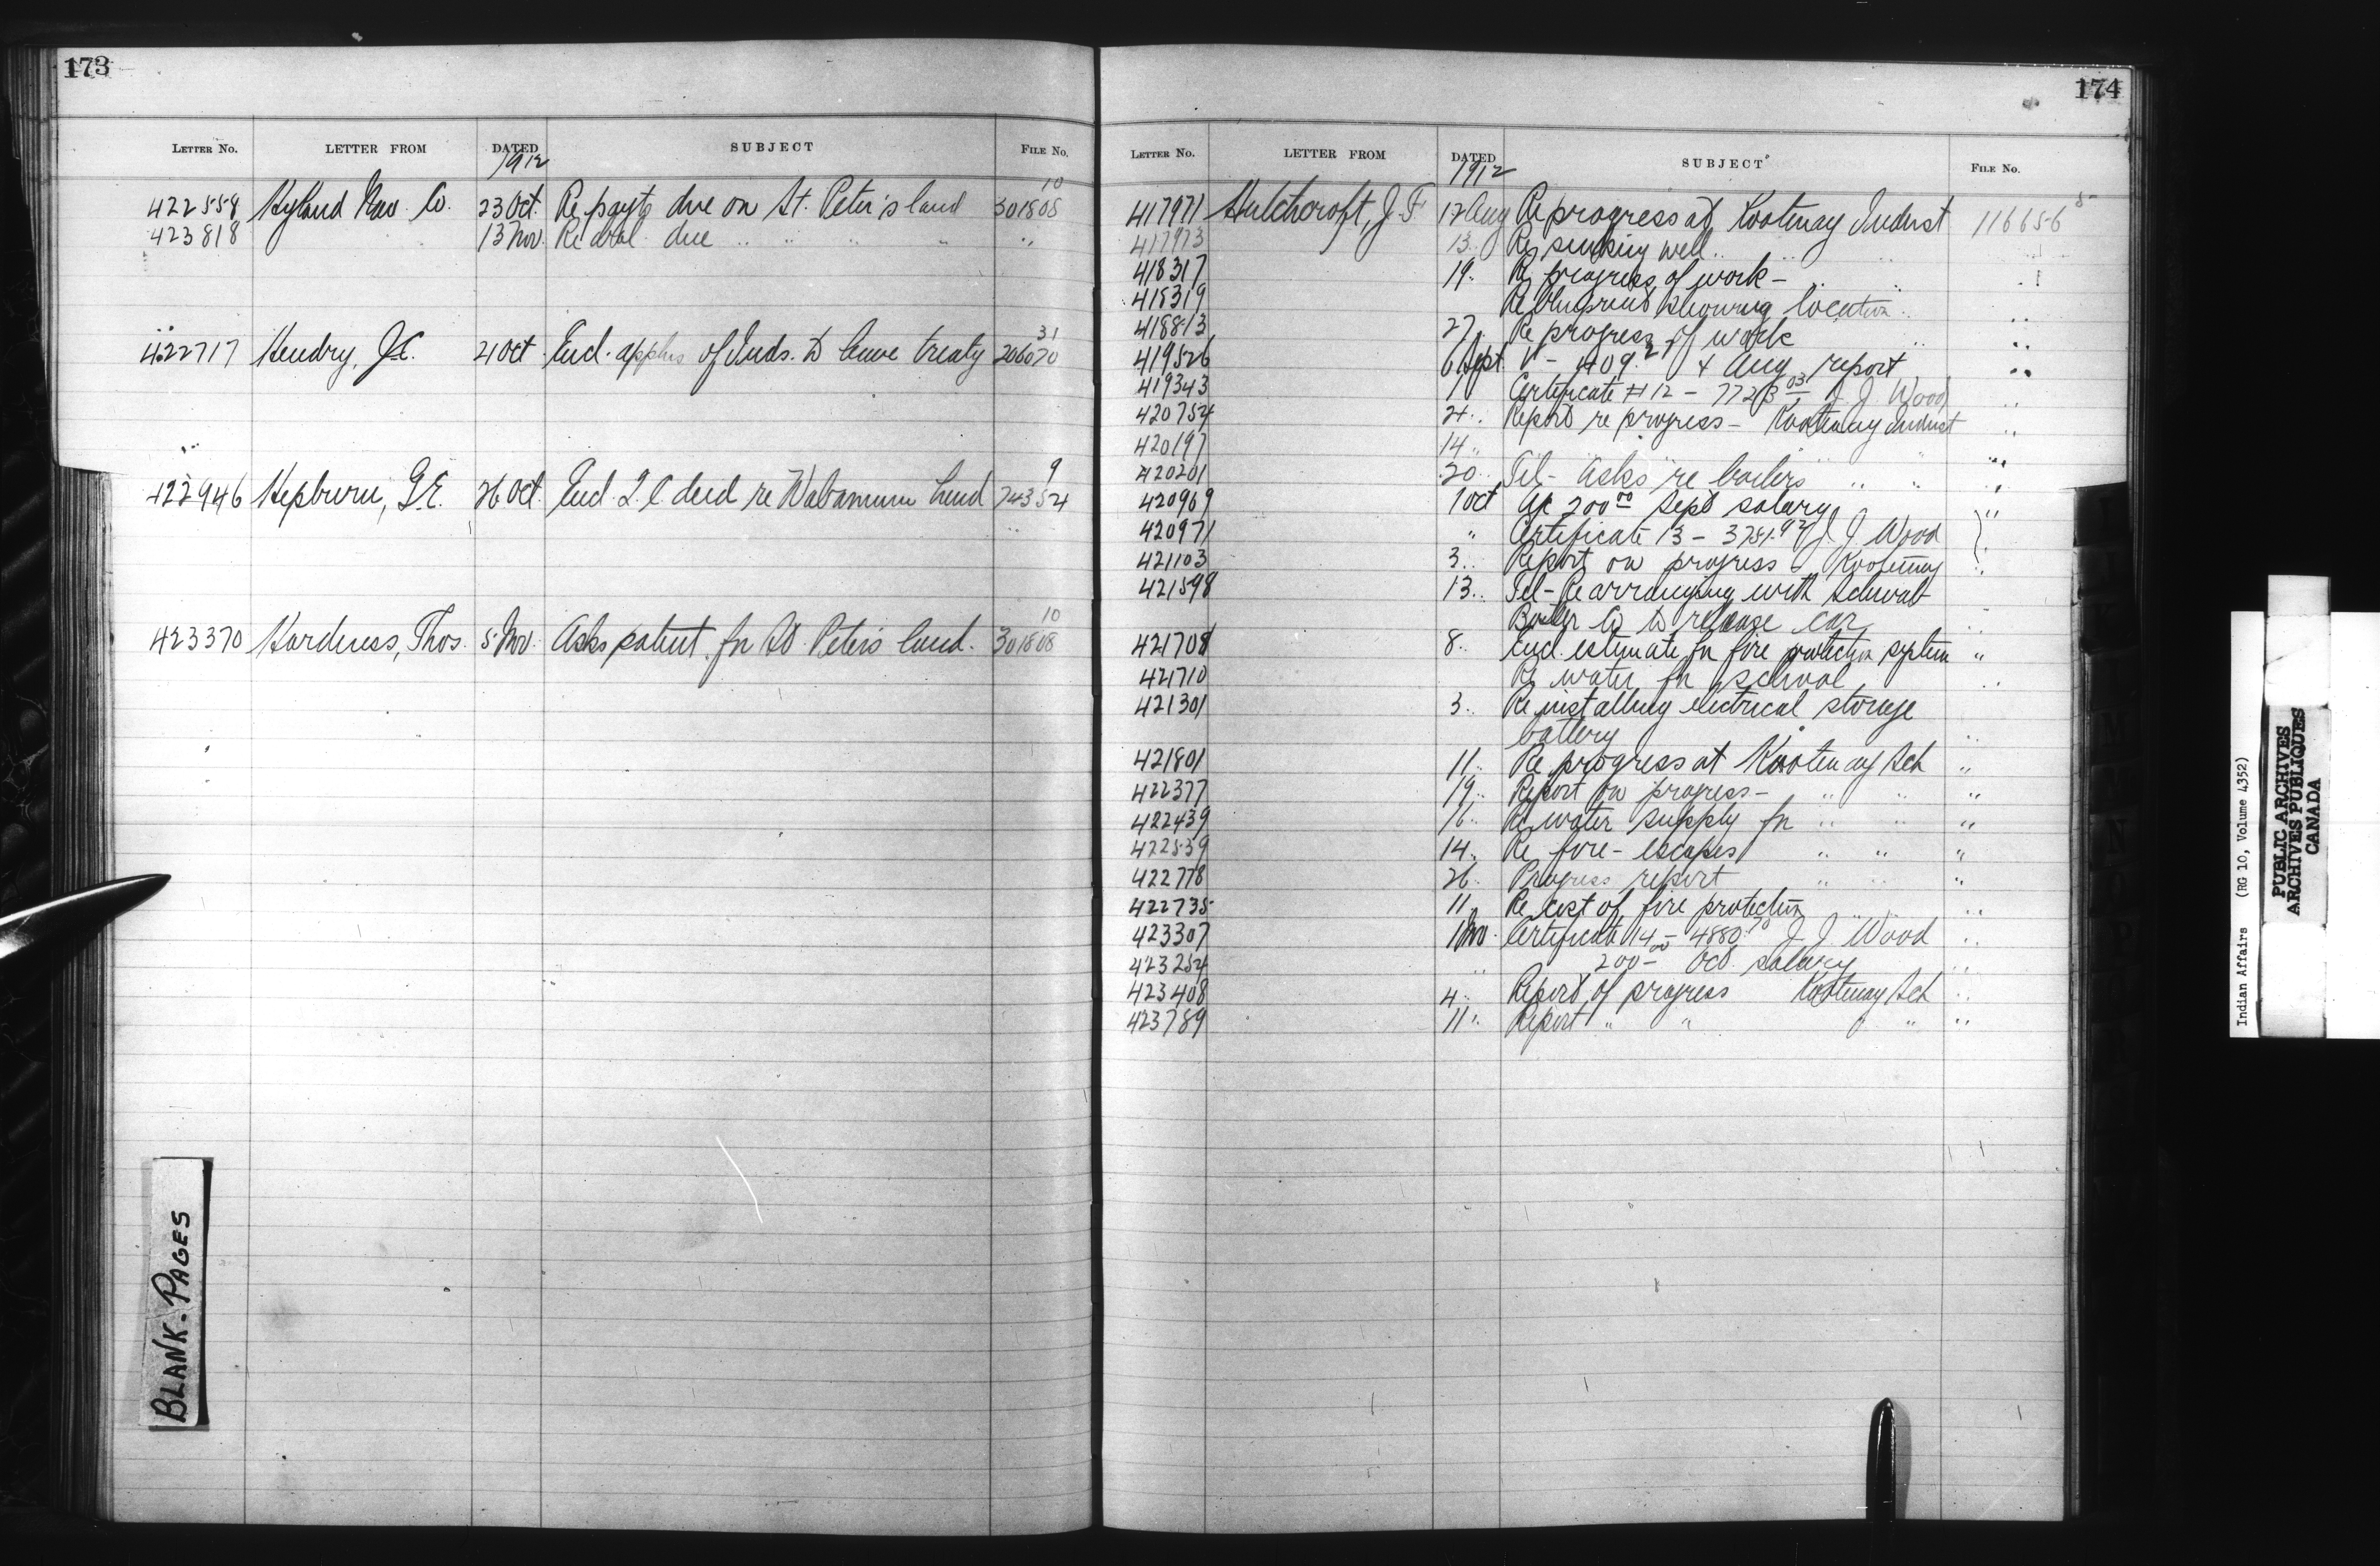 173
LETTER NO. LETTER FROM DATED SUBJECT FILE NO.
1912
10
422558 Hyland Nav. Co. 23 Oct. Re payts due on St. Peter's land 301808
423818 13 Nov. Re due " " " " "
31
422717 Hendry, J.C. 21 Oct. Encl. appltns of Inds. to leave treaty 206070
9
422946 Hepburn, G.E. 26 Oct. Encl. deed re Wabamun land 74354
10
423370 Hardness, Thos. 5 Nov. Asks patent for St. Peters land. 301808
BLANK-PAGES
174
LETTER NO. LETTER FROM DATED SUBJECT FILE NO.
1912
417971 Hutchcroft, J. F. 12 Aug Re progress at Kootenay Indust 116656 5
417973 13 " Re sinking well " " "
418317 19 " Re progress of work - " "
418319 Re blueprint showing location "
418813 27 " Re progress of work " "
419526 6 Sept. & Aug report "
419343 Certificate #12 - 7723 03 J. J. Wood "
420754 21 " Report re progress - Kootenay Indust "
420197 14 "
420201 20 " Tel - Asks re boilers " " "
420969 1 Oct a/c 200 00 Sept salary "
420971 " Certificate 13 - 3751.92 J. J. Wood
421103 3 " Report on progress - Kootenay "
421598 13 " Tel - Re arranging with
Boiler Co to release car "
421708 8 " Encl. estimate for fire protection system "
421710 Re water for school "
421301 3 " Re installing electrical storage
battery "
421801 11 " Re progress at Kootenay Sch "
422377 19 " Report on progress - " " "
422439 16 " Re water supply for " " "
422539 14 " Re fire-escapes " " "
422778 26 " Progress report " " "
422735 11 " Re cost of fire protection " " "
423307 1 Nov. Certificate 14 - 4880.70 J. J. Wood "
423254 " 200 00 - Oct. salary "
423408 4 " Report of progress Kootenay Sch "
423789 11 " Report " " " " "
Indian Affairs (RG 10, Volume 4352)
PUBLIC ARCHIVES
ARCHIVES PUBLIQUES
CANADA